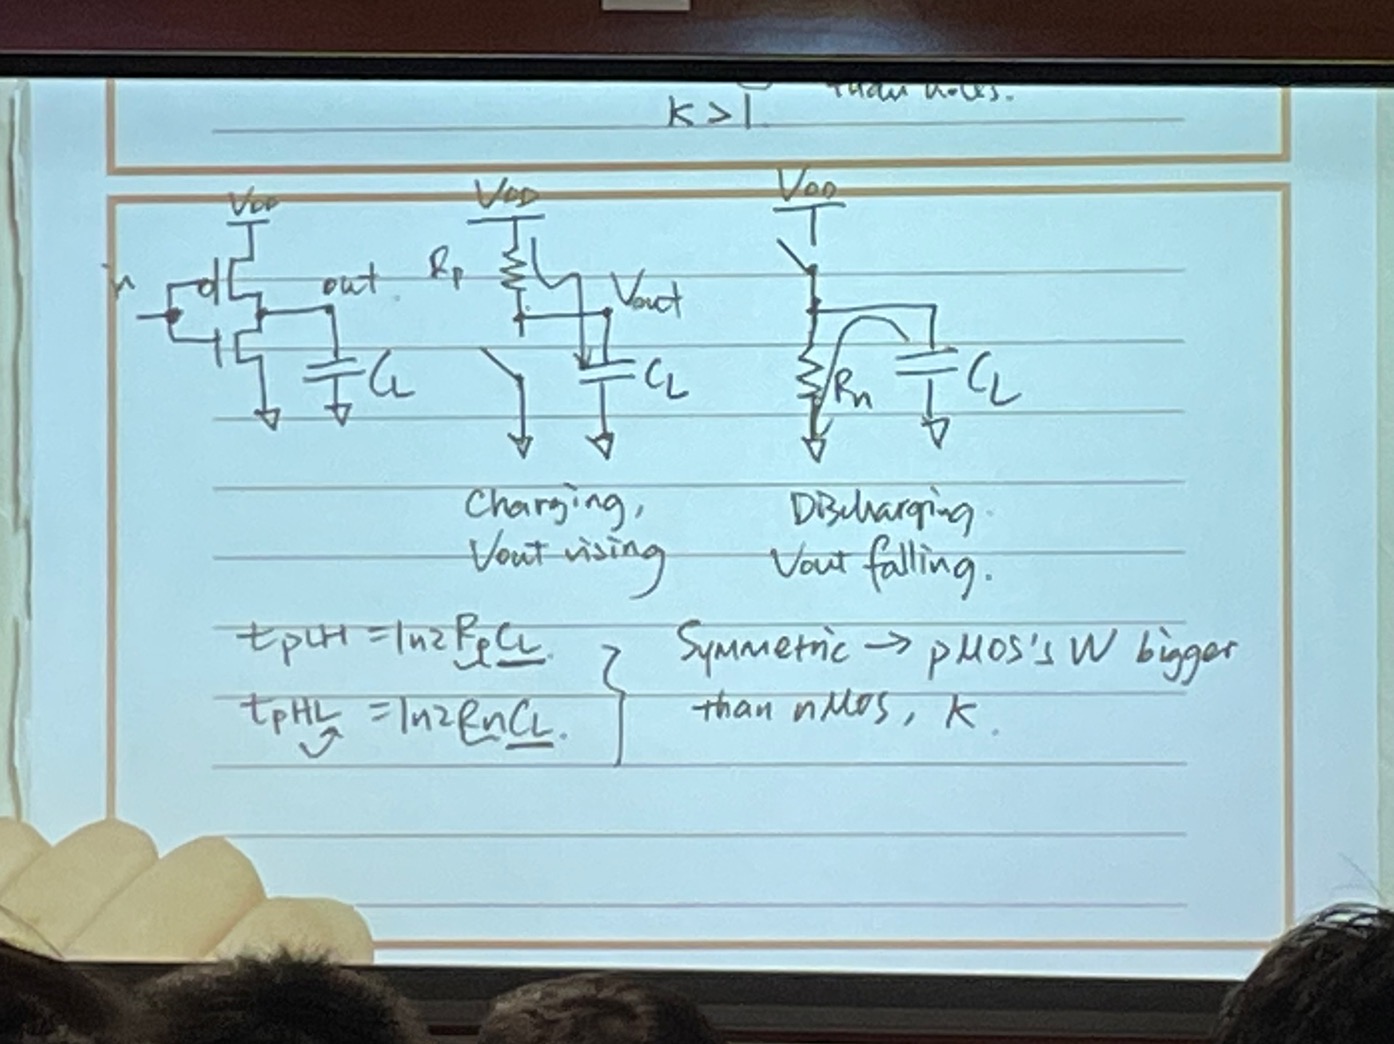 than holes.
K > 1
VDD
VDD
VDD
out
Rp
Vout
CL
CL
Rn
CL
Charging,
Vout rising
Discharging.
Vout falling.
tpLH = ln2 RpCL.
tpHL = ln2 RnCL.
Symmetric → pMOS's W bigger
than nMOS, K.